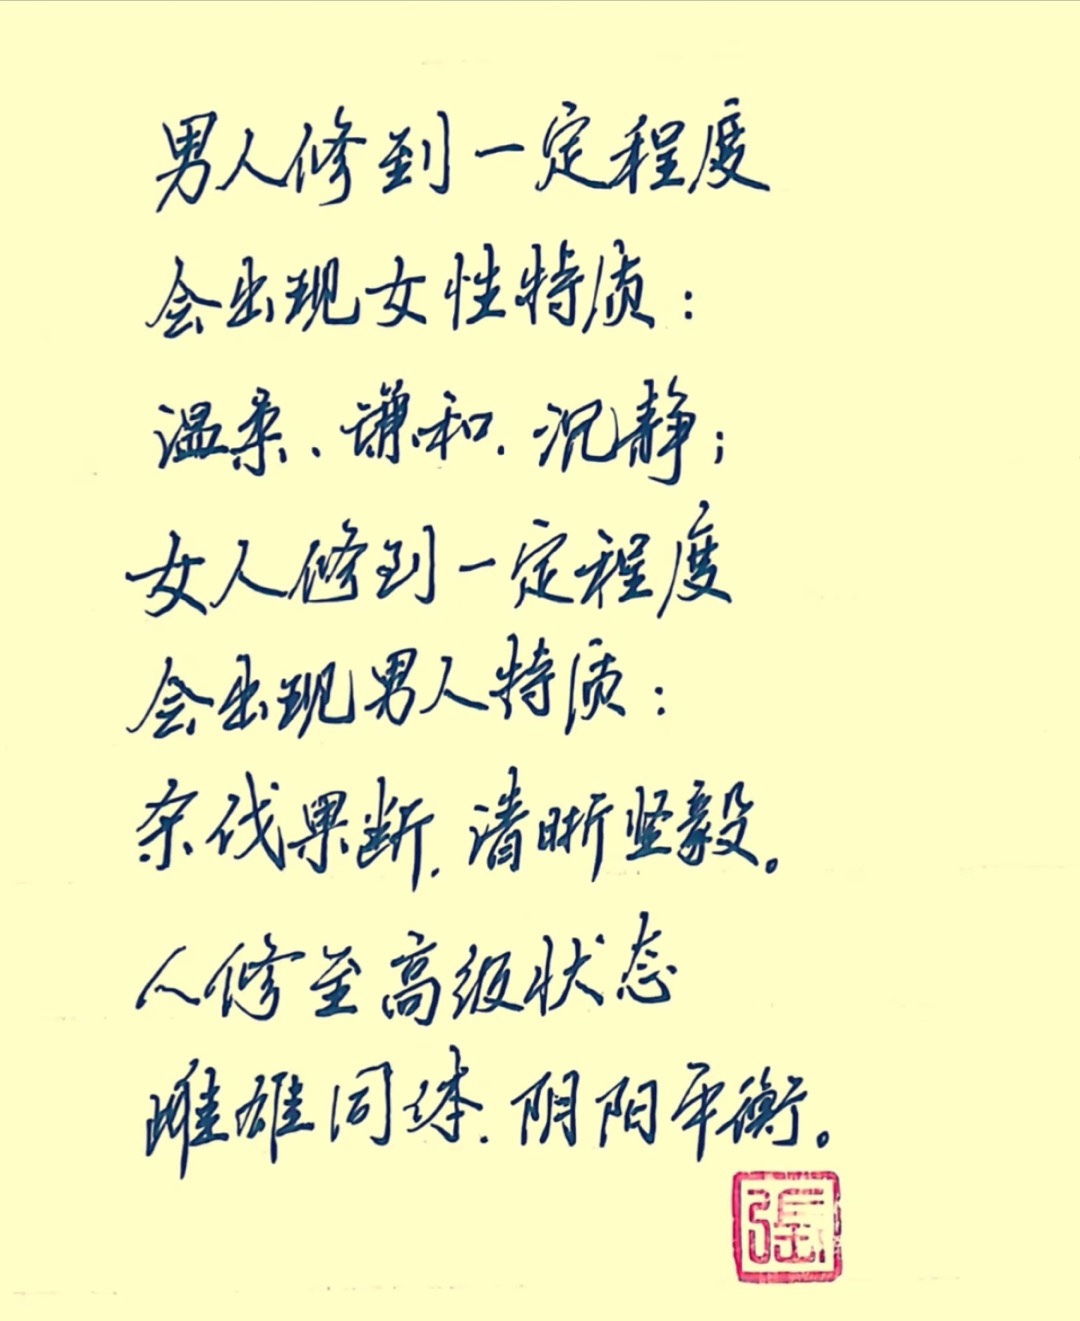 男人修到一定程度
会出现女性特质：
温柔、谦和、沉静；
女人修到一定程度
会出现男人特质：
杀伐果断，清晰坚毅。
人修至高级状态
雌雄同体，阴阳平衡。
張